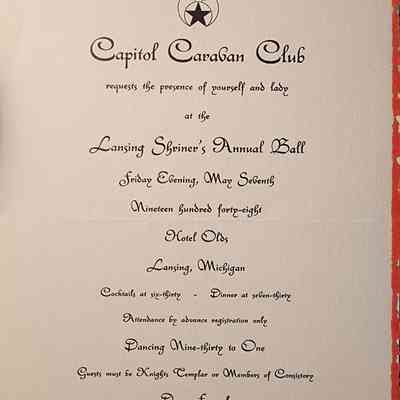 Capitol Caravan Club
requests the presence of yourself and lady
at the
Lansing Shriner's Annual Ball
Friday Evening, May Seventh
Nineteen hundred forty-eight
Hotel Olds
Lansing, Michigan
Cocktails at six-thirty - Dinner at seven-thirty
Attendance by advance registration only
Dancing Nine-thirty to One
Guests must be Knights Templar or Members of Consistory